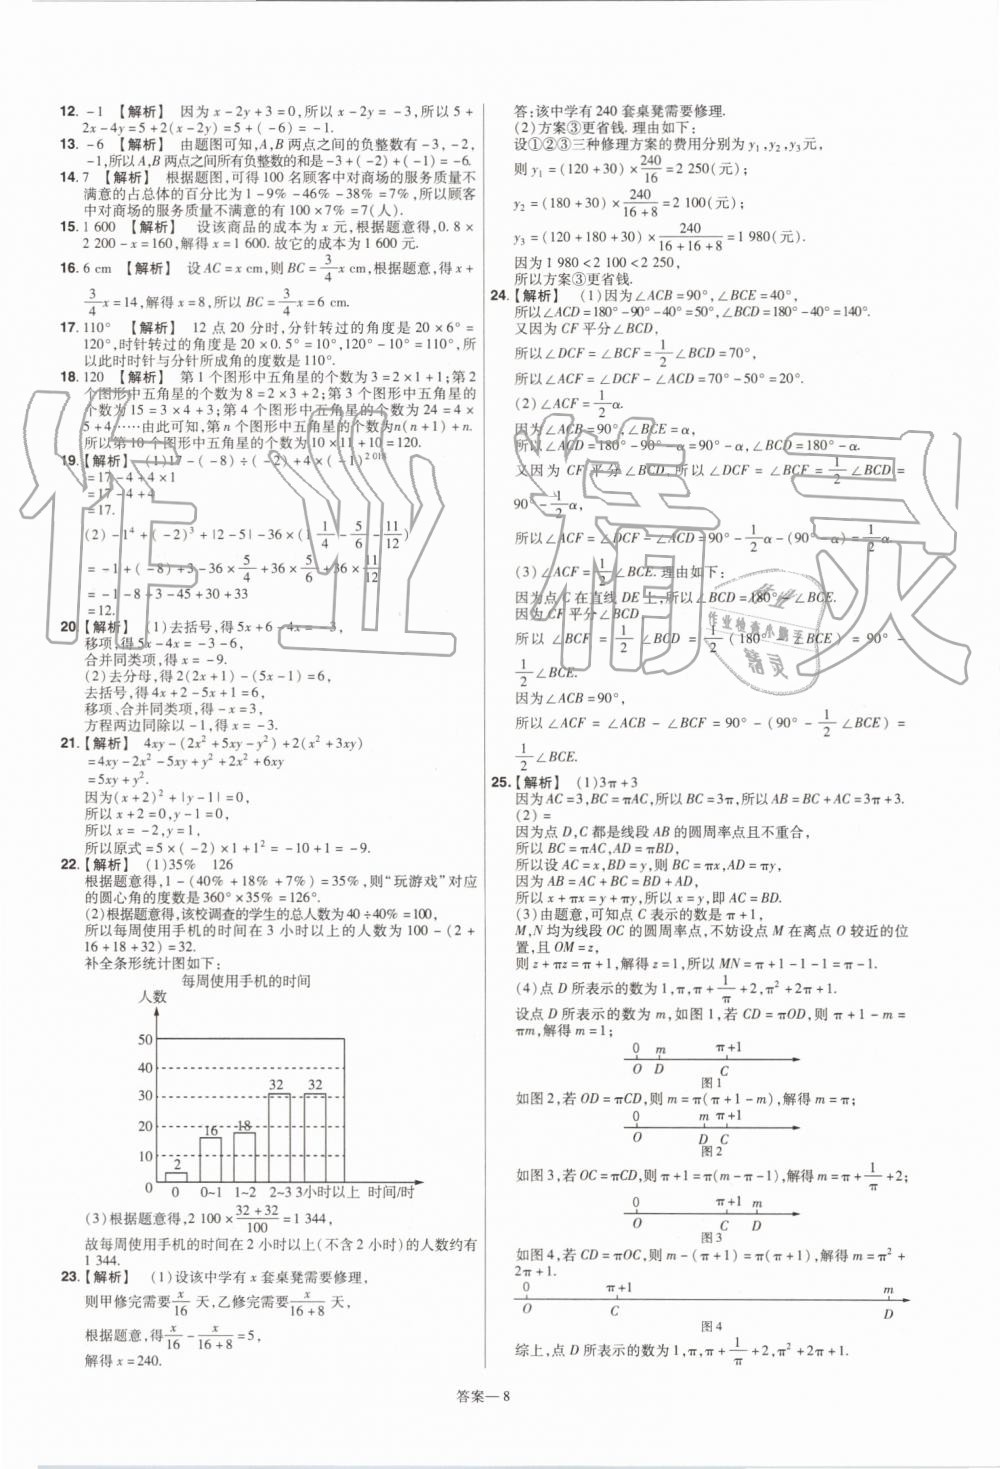 12. -1 【解析】 因为 x-2y+3=0,所以 x-2y=-3,所以 5+
2x-4y=5+2(x-2y)=5+(-6)=-1.
13. -6 【解析】 由题图可知,A,B 两点之间的负整数有-3,-2,
-1,所以A,B两点之间所有负整数的和是-3+(-2)+(-1)=-6.
14. 7 【解析】 根据题图,可得 100 名顾客中对商场的服务质量不
满意的占总体的百分比为 1-9%-46%-38%=7%,所以顾客
中对商场的服务质量不满意的有 100×7%=7(人).
15. 1 600 【解析】 设该商品的成本为 x 元,根据题意得,0.8×
2 200-x=160,解得 x=1 600. 故它的成本为 1 600 元.
16. 6 cm 【解析】 设 AC=x cm,则 BC=3/4 x cm,根据题意,得 x+
3/4 x=14,解得 x=8,所以 BC=3/4 x=6 cm.
17. 110° 【解析】 12 点 20 分时,分针转过的角度是 20×6°=
120°,时针转过的角度是 20×0.5°=10°,120°-10°=110°,所
以此时时针与分针所成角的度数是 110°.
18. 120 【解析】 第 1 个图形中五角星的个数为 3=2×1+1;第 2
个图形中五角星的个数为 8=2×3+2;第 3 个图形中五角星的
个数为 15=3×4+3;第 4 个图形中五角星的个数为 24=4×
5+4……由此可知,第 n 个图形中五角星的个数为n(n+1)+n.
所以第 10 个图形中五角星的个数为 10×11+10=120.
19. 【解析】 (1)17-(-8)÷(-2)+4×(-1)^2 018
=17-4+4×1
=17-4+4
=17.
(2)-1^4+(-2)^3+|2-5|-36×(1/4-5/6-11/12)
=-1+(-8)+3-36×5/4+36×5/6+36×11/12
=-1-8+3-45+30+33
=12.
20. 【解析】 (1)去括号,得 5x+6-4x=-3,
移项,得 5x-4x=-3-6,
合并同类项,得 x=-9.
(2)去分母,得 2(2x+1)-(5x-1)=6,
去括号,得 4x+2-5x+1=6,
移项、合并同类项,得-x=3,
方程两边同除以-1,得 x=-3.
21. 【解析】 4xy-(2x²+5xy-y²)+2(x²+3xy)
=4xy-2x²-5xy+y²+2x²+6xy
=5xy+y².
因为(x+2)²+|y-1|=0,
所以 x+2=0,y-1=0,
所以 x=-2,y=1,
所以原式=5×(-2)×1+1²=-10+1=-9.
22. 【解析】 (1)35% 126
根据题意得,1-(40%+18%+7%)=35%,则“玩游戏”对应
的圆心角的度数是 360°×35%=126°.
(2)根据题意得,该校调查的学生的总人数为 40÷40%=100,
所以每周使用手机的时间在 3 小时以上的人数为 100-(2+
16+18+32)=32.
补全条形统计图如下:
每周使用手机的时间
人数
50
40
30
20
10
0
2
16
18
32
32
0 0~1 1~2 2~3 3小时以上 时间/时
(3)根据题意得,2 100×(32+32)/100=1 344,
故每周使用手机的时间在 2 小时以上(不含 2 小时)的人数约有
1 344.
23. 【解析】 (1)设该中学有 x 套桌凳需要修理,
则甲修完需要x/16天,乙修完需要x/(16+8)天,
根据题意,得x/16-x/(16+8)=5,
解得 x=240.
答:该中学有 240 套桌凳需要修理.
(2)方案③更省钱. 理由如下:
设①②③三种修理方案的费用分别为 y₁,y₂,y₃元,
则 y₁=(120+30)×240/16=2 250(元);
y₂=(180+30)×240/(16+8)=2 100(元);
y₃=(120+180+30)×240/(16+16+8)=1 980(元).
因为 1 980<2 100<2 250,
所以方案③更省钱.
24. 【解析】 (1)因为∠ACB=90°,∠BCE=40°,
所以∠ACD=180°-90°-40°=50°,∠BCD=180°-40°=140°.
又因为 CF 平分∠BCD,
所以∠DCF=∠BCF=1/2∠BCD=70°,
所以∠ACF=∠DCF-∠ACD=70°-50°=20°.
(2)∠ACF=1/2α.
因为∠ACB=90°,∠BCE=α,
所以∠ACD=180°-90°-α=90°-α,∠BCD=180°-α.
又因为 CF 平分∠BCD,所以∠DCF=∠BCF=1/2∠BCD=
90°-1/2α,
所以∠ACF=∠DCF-∠ACD=90°-1/2α-(90°-α)=1/2α.
(3)∠ACF=1/2∠BCE. 理由如下:
因为点 C 在直线 DE 上,所以∠BCD=180°-∠BCE.
因为 CF 平分∠BCD,
所以∠BCF=1/2∠BCD=1/2(180°-∠BCE)=90°-
1/2∠BCE.
因为∠ACB=90°,
所以∠ACF=∠ACB-∠BCF=90°-(90°-1/2∠BCE)=
1/2∠BCE.
25. 【解析】 (1)3π+3
因为 AC=3,BC=πAC,所以 BC=3π,所以 AB=BC+AC=3π+3.
(2)=
因为点 D,C 都是线段 AB 的圆周率点且不重合,
所以 BC=πAC,AD=πBD,
所以设 AC=x,BD=y,则 BC=πx,AD=πy,
因为 AB=AC+BC=BD+AD,
所以 x+πx=y+πy,所以 x=y,即 AC=BD.
(3)由题意,可知点 C 表示的数是 π+1,
M,N 均为线段 OC 的圆周率点,不妨设点 M 在离点 O 较近的位
置,且 OM=z,
则 z+πz=π+1,解得 z=1,所以 MN=π+1-1-1=π-1.
(4)点 D 所表示的数为 1,π,π+1/π+2,π²+2π+1.
设点 D 所表示的数为 m,如图 1,若 CD=πOD,则 π+1-m=
πm,解得 m=1;
0 m π+1
O D C
图 1
如图 2,若 OD=πCD,则 m=π(π+1-m),解得 m=π;
0 m π+1
O D C
图 2
如图 3,若 OC=πCD,则 π+1=π(m-π-1),解得 m=π+1/π+2;
0 π+1 m
O C D
图 3
如图 4,若 CD=πOC,则 m-(π+1)=π(π+1),解得 m=π²+
2π+1.
0 π+1 m
O C D
图 4
综上,点 D 所表示的数为 1,π,π+1/π+2,π²+2π+1.
答案—8
作业精灵
作业检查小助手
精灵